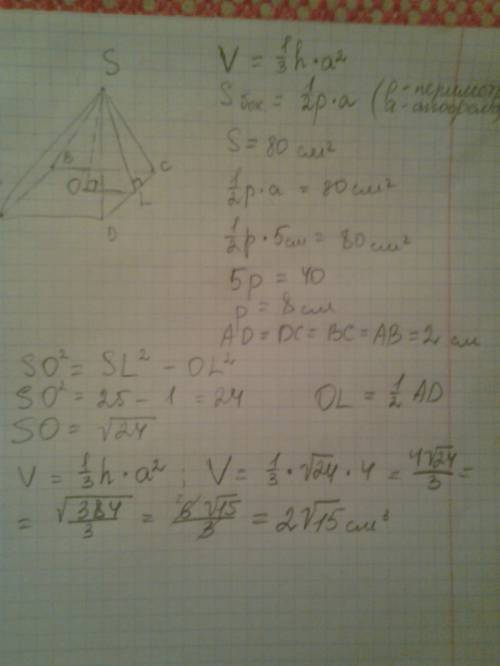 S
B
O
C
L
D
V = 1/3 h · a²
S бок = 1/2 p · a (p - периметр
a - апофема
S = 80 см²
1/2 p · a = 80 см²
1/2 p · 5 см = 80 см²
5p = 40
p = 8 см
AD = DC = BC = AB = 2 см
SO² = SL² - OL²
SO² = 25 - 1 = 24 OL = 1/2 AD
SO = √24
V = 1/3 h · a² ; V = 1/3 · √24 · 4 = 4√24/3 =
= √384/3 = 6√15/3 = 2√15 см³